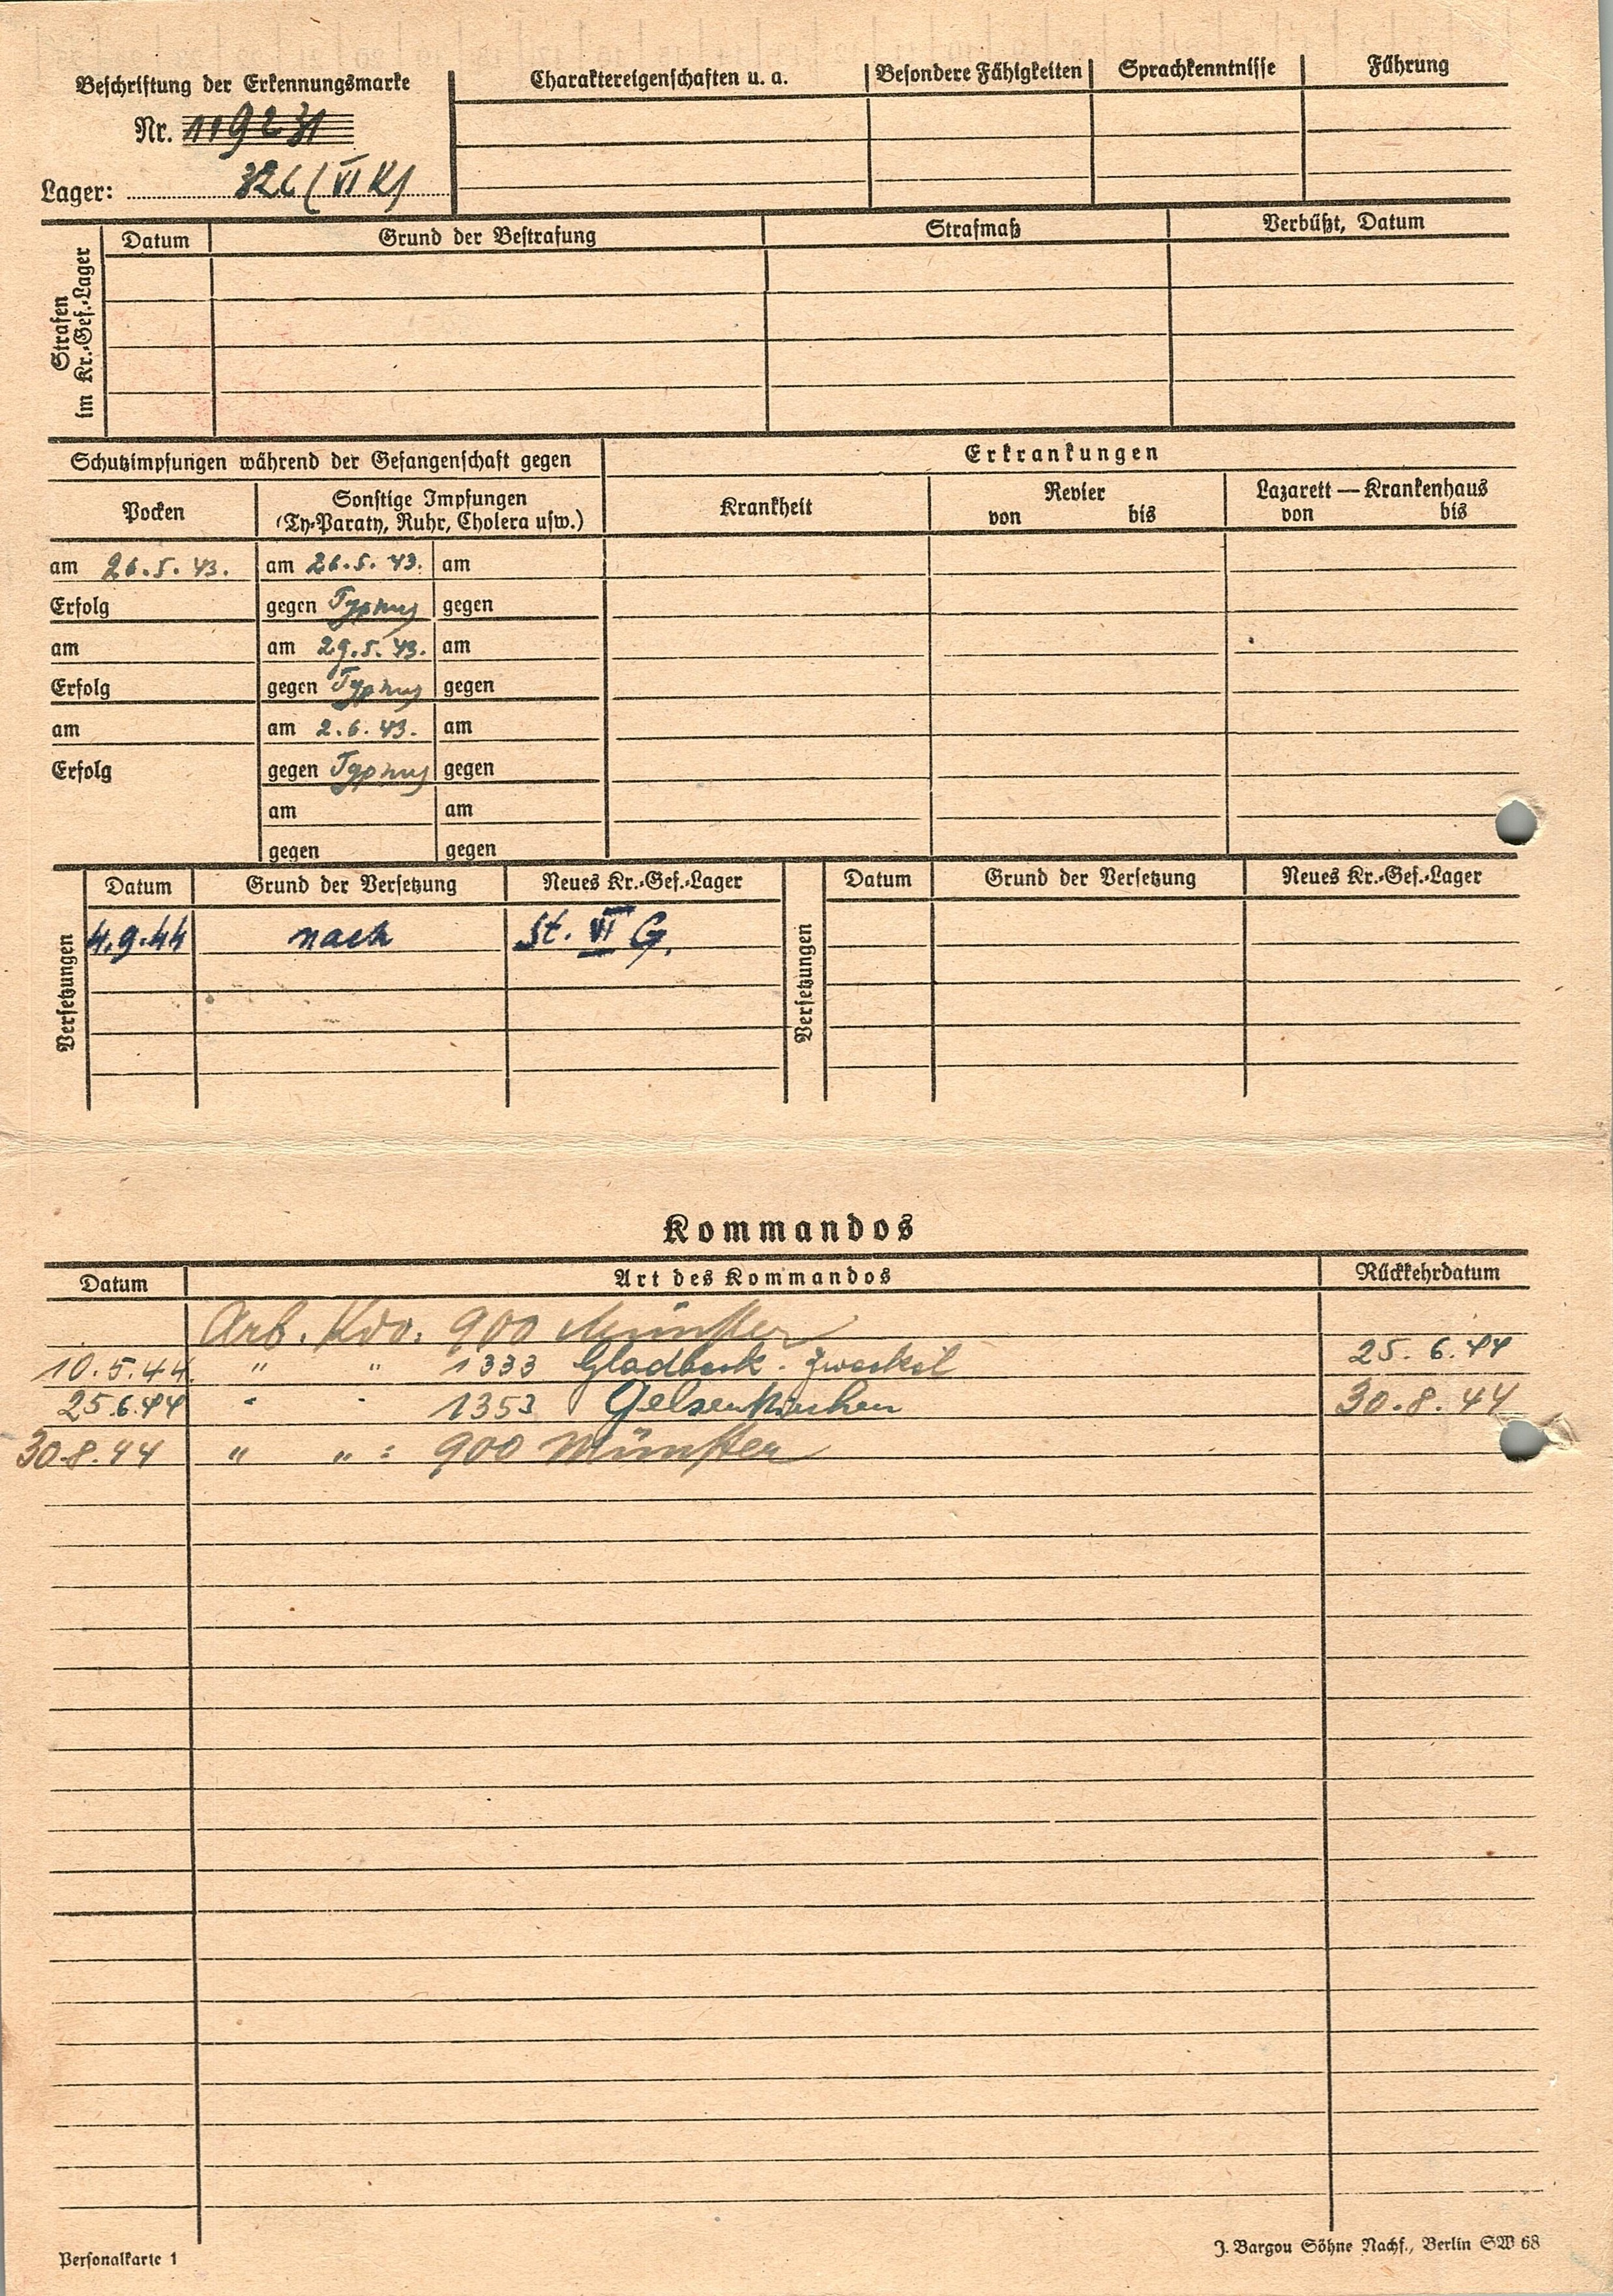 Beschriftung der Erkennungsmarke
Nr. 119231
Lager: 326 (VI K)
Charaktereigenschaften u. a. Besondere Fähigkeiten Sprachkenntnisse Führung
Strafen im Kr.-Gef.-Lager
Datum Grund der Bestrafung Strafmaß Verbüßt, Datum
Schutzimpfungen während der Gefangenschaft gegen
Erkrankungen
Pocken
Sonstige Impfungen
(Ty-Paraty, Ruhr, Cholera usw.)
Krankheit
Revier
von bis
Lazarett — Krankenhaus
von bis
am 26.5.43. am 26.5.43. am
Erfolg gegen Typhus gegen
am am 29.5.43. am
Erfolg gegen Typhus gegen
am am 2.6.43. am
Erfolg gegen Typhus gegen
am am
gegen gegen
Versetzungen
Datum Grund der Versetzung Neues Kr.-Gef.-Lager
4.9.44 nach St. VI G.
Versetzungen
Datum Grund der Versetzung Neues Kr.-Gef.-Lager
Kommandos
Datum Art des Kommandos Rückkehrdatum
Arb. Kdo. 900 Münster
10.5.44. " " 1333 Gladbeck-Zweckel 25.6.44
25.6.44 " " 1353 Gelsenkirchen 30.8.44
30.8.44 " " : 900 Münster
Personalkarte 1
J. Bargou Söhne Nachf., Berlin SW 68